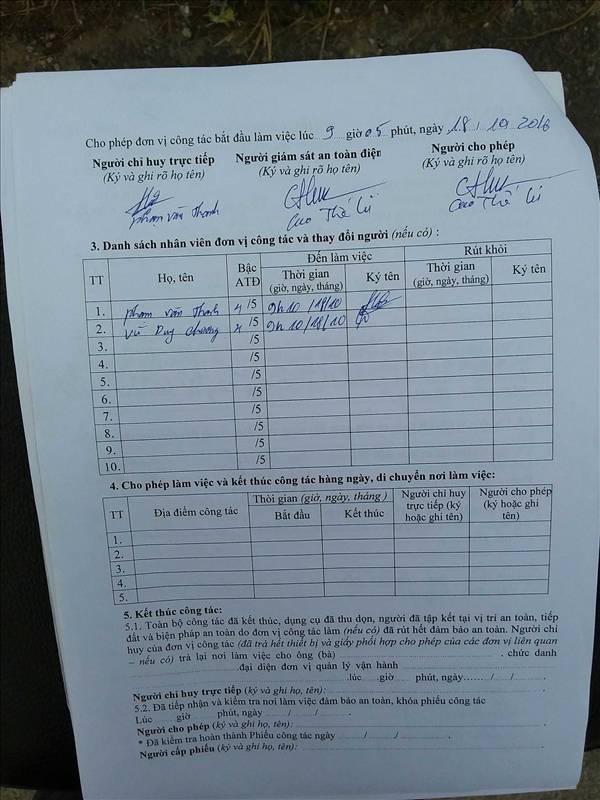 Cho phép đơn vị công tác bắt đầu làm việc lúc 9 giờ 05 phút, ngày 18 / 10 2016
Người chỉ huy trực tiếp Người giám sát an toàn điện Người cho phép
(Ký và ghi rõ họ tên) (Ký và ghi rõ họ tên) (Ký và ghi rõ họ tên)
Phạm Văn Thanh Cao Thế Lữ Cao Thế Lữ
3. Danh sách nhân viên đơn vị công tác và thay đổi người (nếu có) :
TT Họ, tên Bậc ATĐ Đến làm việc Rút khỏi
Thời gian (giờ, ngày, tháng) Ký tên Thời gian (giờ, ngày, tháng) Ký tên
1. Phạm Văn Thanh 4 /5 9h10 /18/10
2. Vũ Duy Chương 4 /5 9h10/18/10
3. /5
4. /5
5. /5
6. /5
7. /5
8. /5
9. /5
10. /5
4. Cho phép làm việc và kết thúc công tác hàng ngày, di chuyển nơi làm việc:
TT Địa điểm công tác Thời gian (giờ, ngày, tháng ) Người chỉ huy trực tiếp (ký hoặc ghi tên) Người cho phép (ký hoặc ghi tên)
Bắt đầu Kết thúc
1.
2.
3.
4.
5.
5. Kết thúc công tác:
5.1. Toàn bộ công tác đã kết thúc, dụng cụ đã thu dọn, người đã tập kết tại vị trí an toàn, tiếp
đất và biện pháp an toàn do đơn vị công tác làm (nếu có) đã rút hết đảm bảo an toàn. Người chỉ
huy của đơn vị công tác (đã trả hết thiết bị và giấy phối hợp cho phép của các đơn vị liên quan
– nếu có) trả lại nơi làm việc cho ông (bà) ............ chức danh
............ đại diện đơn vị quản lý vận hành ............
............ lúc ...... giờ ...... phút, ngày ....../....../......
Người chỉ huy trực tiếp (ký và ghi họ, tên): ............
5.2. Đã tiếp nhận và kiểm tra nơi làm việc đảm bảo an toàn, khóa phiếu công tác
Lúc ...... giờ ...... phút, ngày ....../....../......
Người cho phép (ký và ghi họ, tên): ............
* Đã kiểm tra hoàn thành Phiếu công tác ngày ....../....../......
Người cấp phiếu (ký và ghi họ, tên): ............